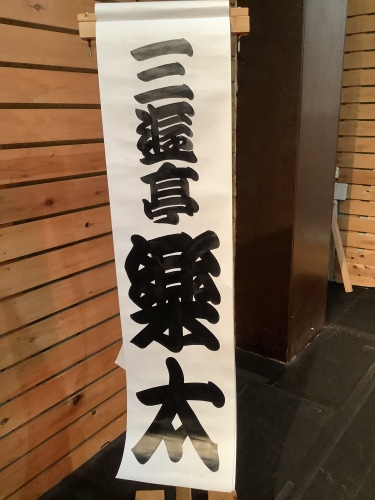 三遊亭樂太